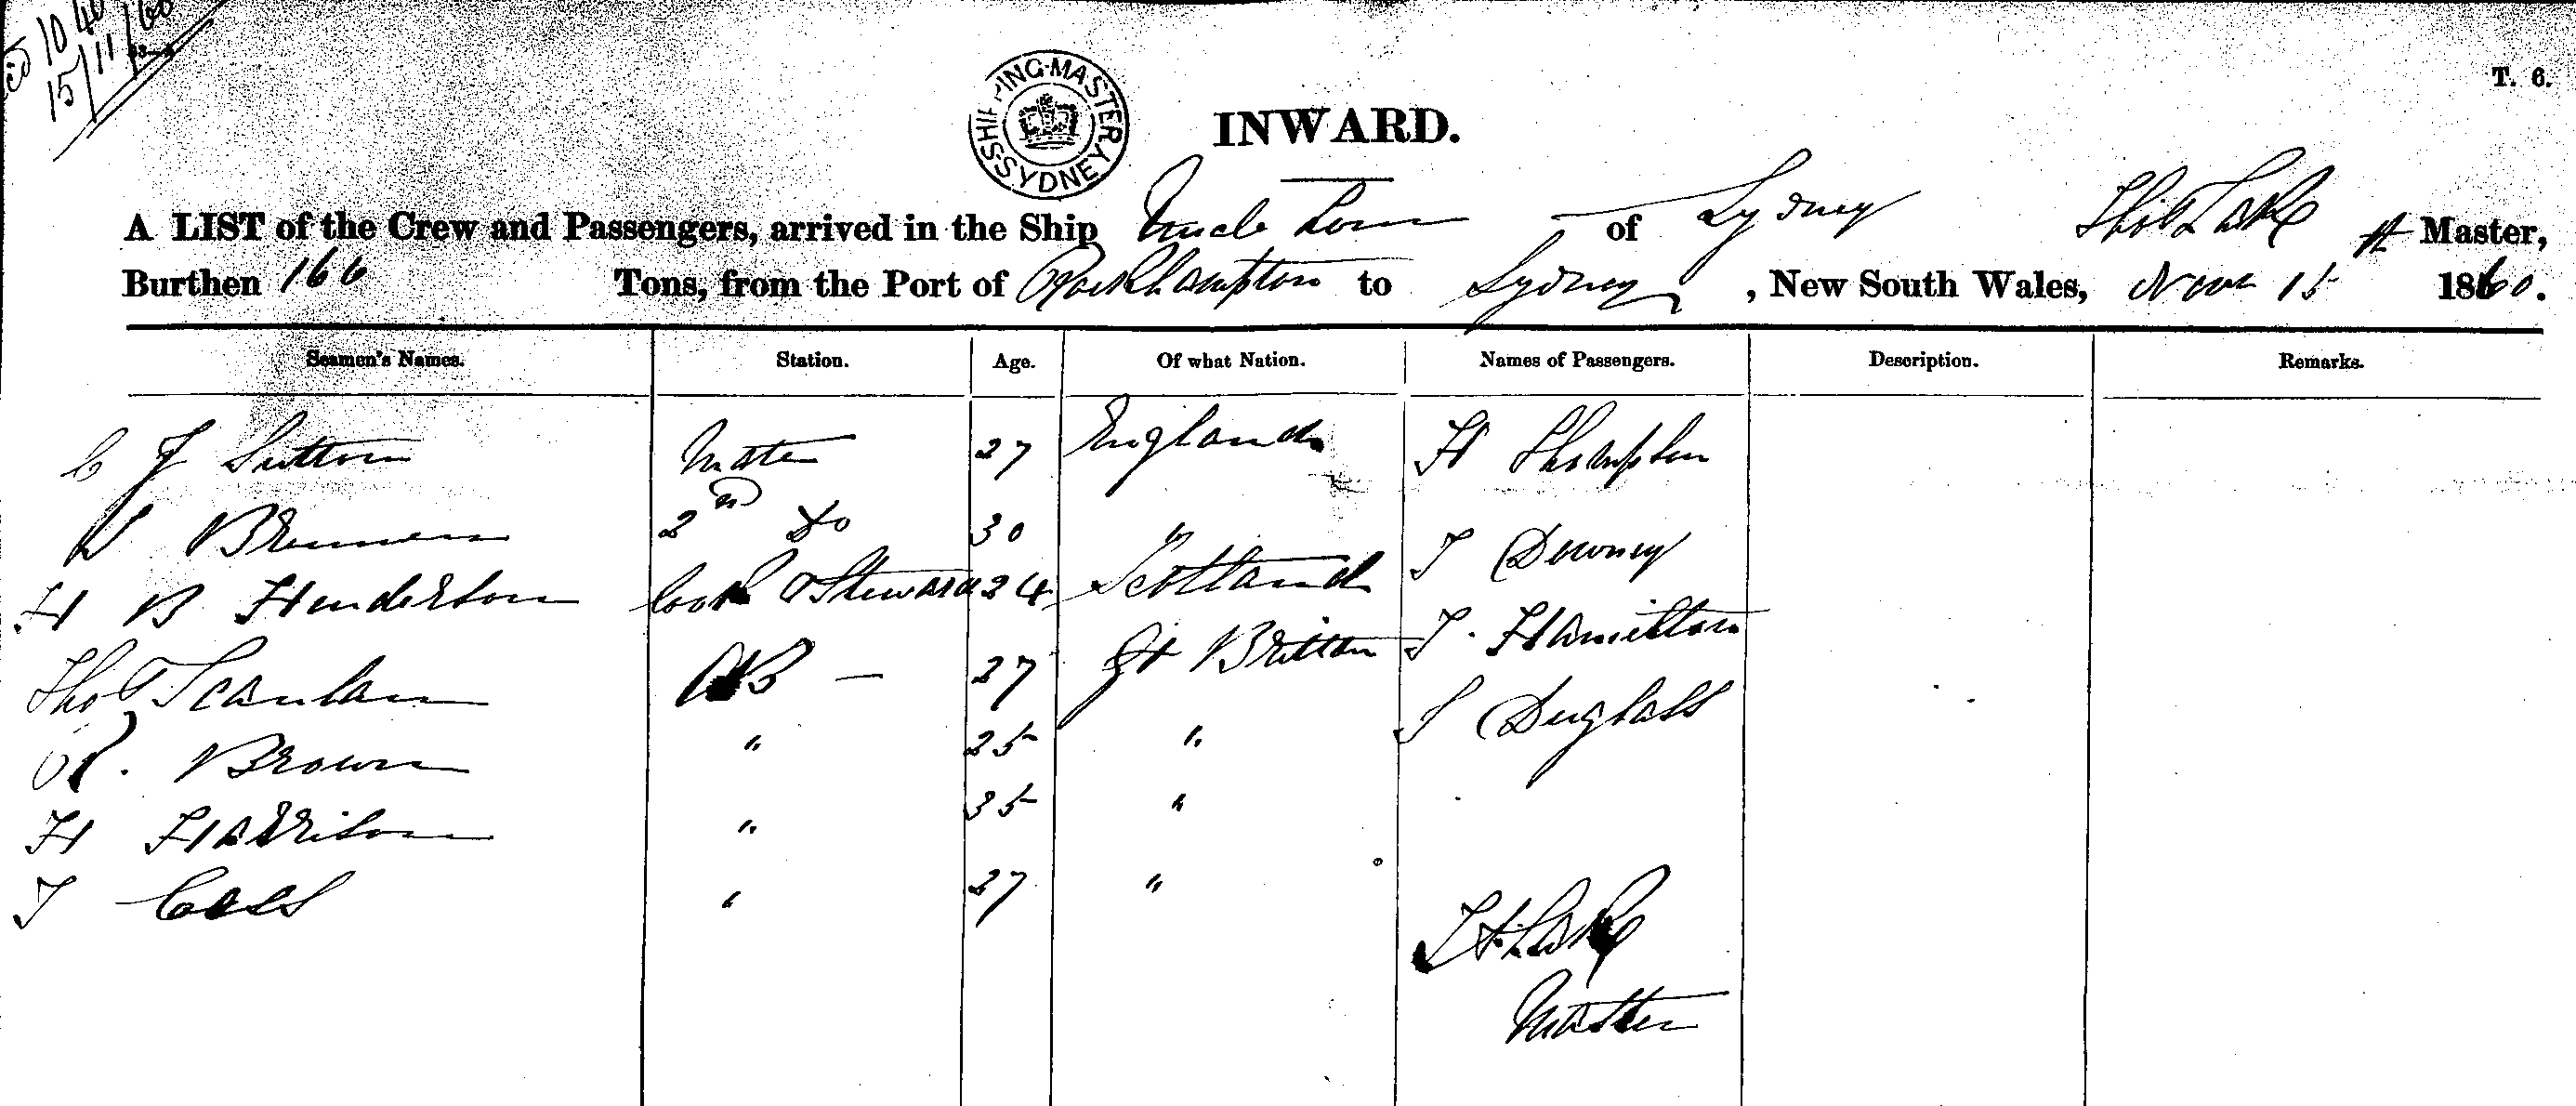 10 40
15/11/60
SHIPPING MASTER SYDNEY
T. 6.
INWARD.
A LIST of the Crew and Passengers, arrived in the Ship Uncle Tom of Sydney Thos Lake Master,
Burthen 166 Tons, from the Port of Rockhampton to Sydney, New South Wales, Nov 15 1860.
Seamen's Names. Station. Age. Of what Nation. Names of Passengers. Description. Remarks.
C J Sutton Mate 27 England H Thompson
W Brennen 2nd Do 30 J Downey
H B Henderson Cook & Steward 24 Scotland J. Hamilton
Thos Scanlan AB — 27 Gt Brittan J Duglass
R. Brown " 25 "
H Harrison " 35 "
J Cass " 27 "
T H Lake
Master